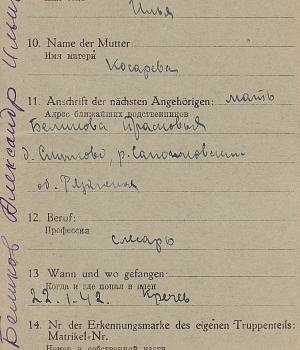 Беликов Александр Ильич
Илья
10. Name der Mutter
Имя матери
Косарева
11. Anschrift der nächsten Angehörigen: мать
Адрес ближайших родственников
Беликова
д. р. Сапожковский
об. Рязанская
12. Beruf:
Профессия
слесарь
13 Wann und wo gefangen:
Когда и где попал в плен
22.1.42. Кречев
14. Nr der Erkennungsmarke des eigenen Truppenteils:
Matrikel-Nr.
Номер и собственной части